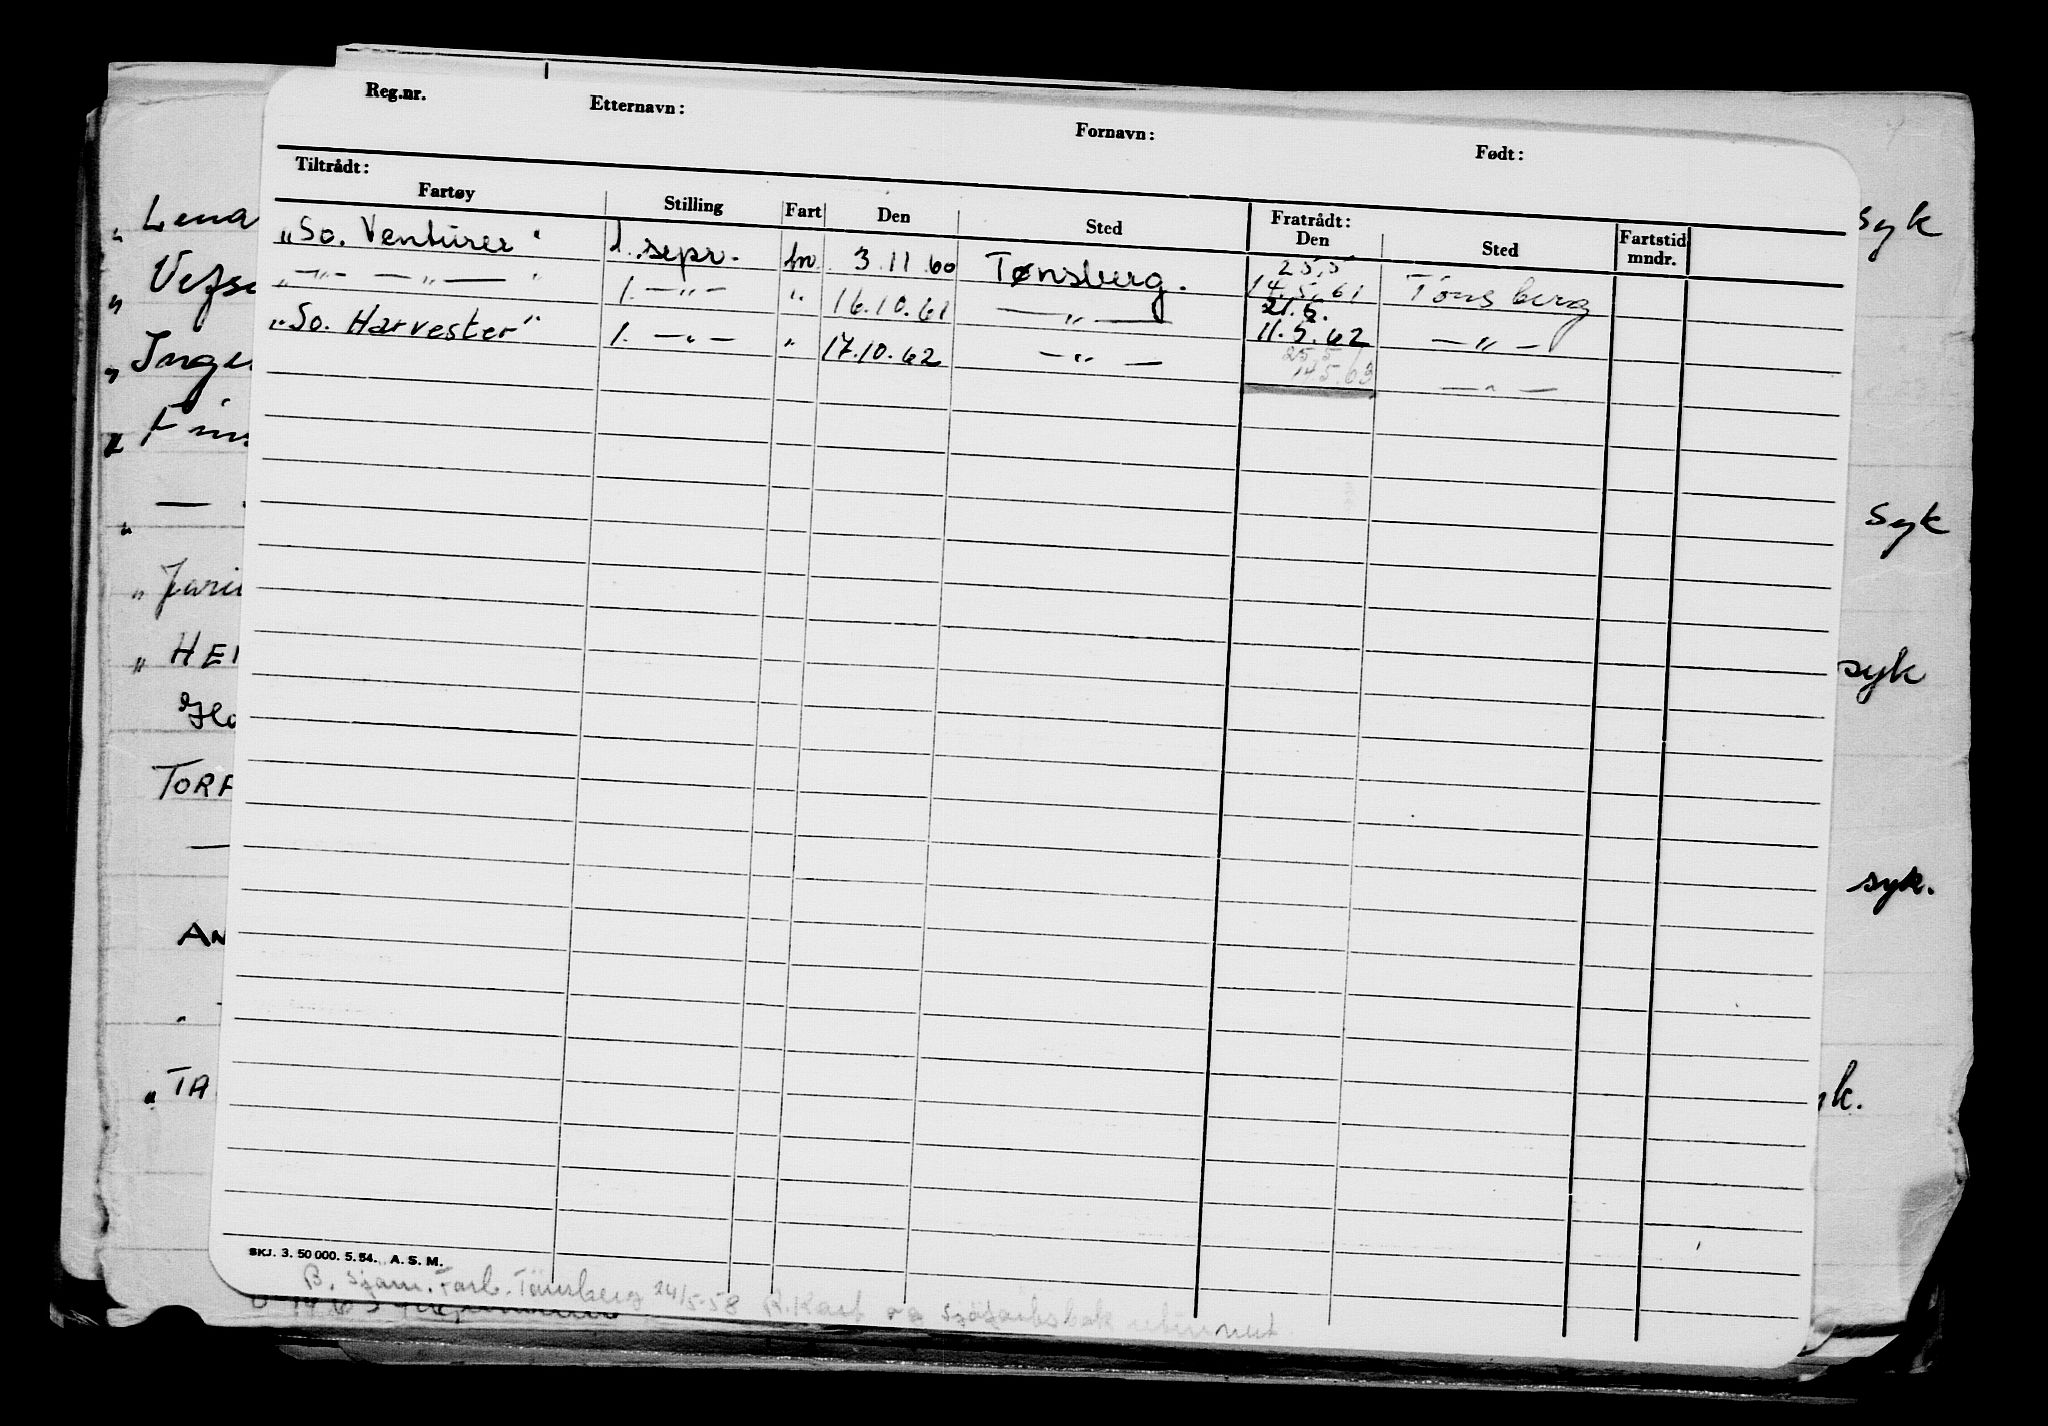 Reg.nr. Etternavn: Fornavn: Født:
Tiltrådt: Fratrådt:
Fartøy Stilling Fart Den Sted Den Sted Fartstid mndr.
„So. Venturer" 1. sepr. fn. 3.11.60 Tønsberg. 25.5 14.5.61 Tønsberg
„ — " — — „ — " 1. — „ — " 16.10.61 — „ — 21.5. 11.5.62 — „ —
„So. Harvester" 1. — „ — " 17.10.62 — „ — 25.5 14.5.63 — „ —
„ Lena
„ Vefs
„ Inge
„ Finn
„ —
„ Jari
„ HE
TOR
—
AN
„ TA
syk
syk
syk
syk.
yk.
SKJ. 3. 50 000. 5. 54. A. S. M.
B. Sjøm. Forb. Tønsberg 24/5-58